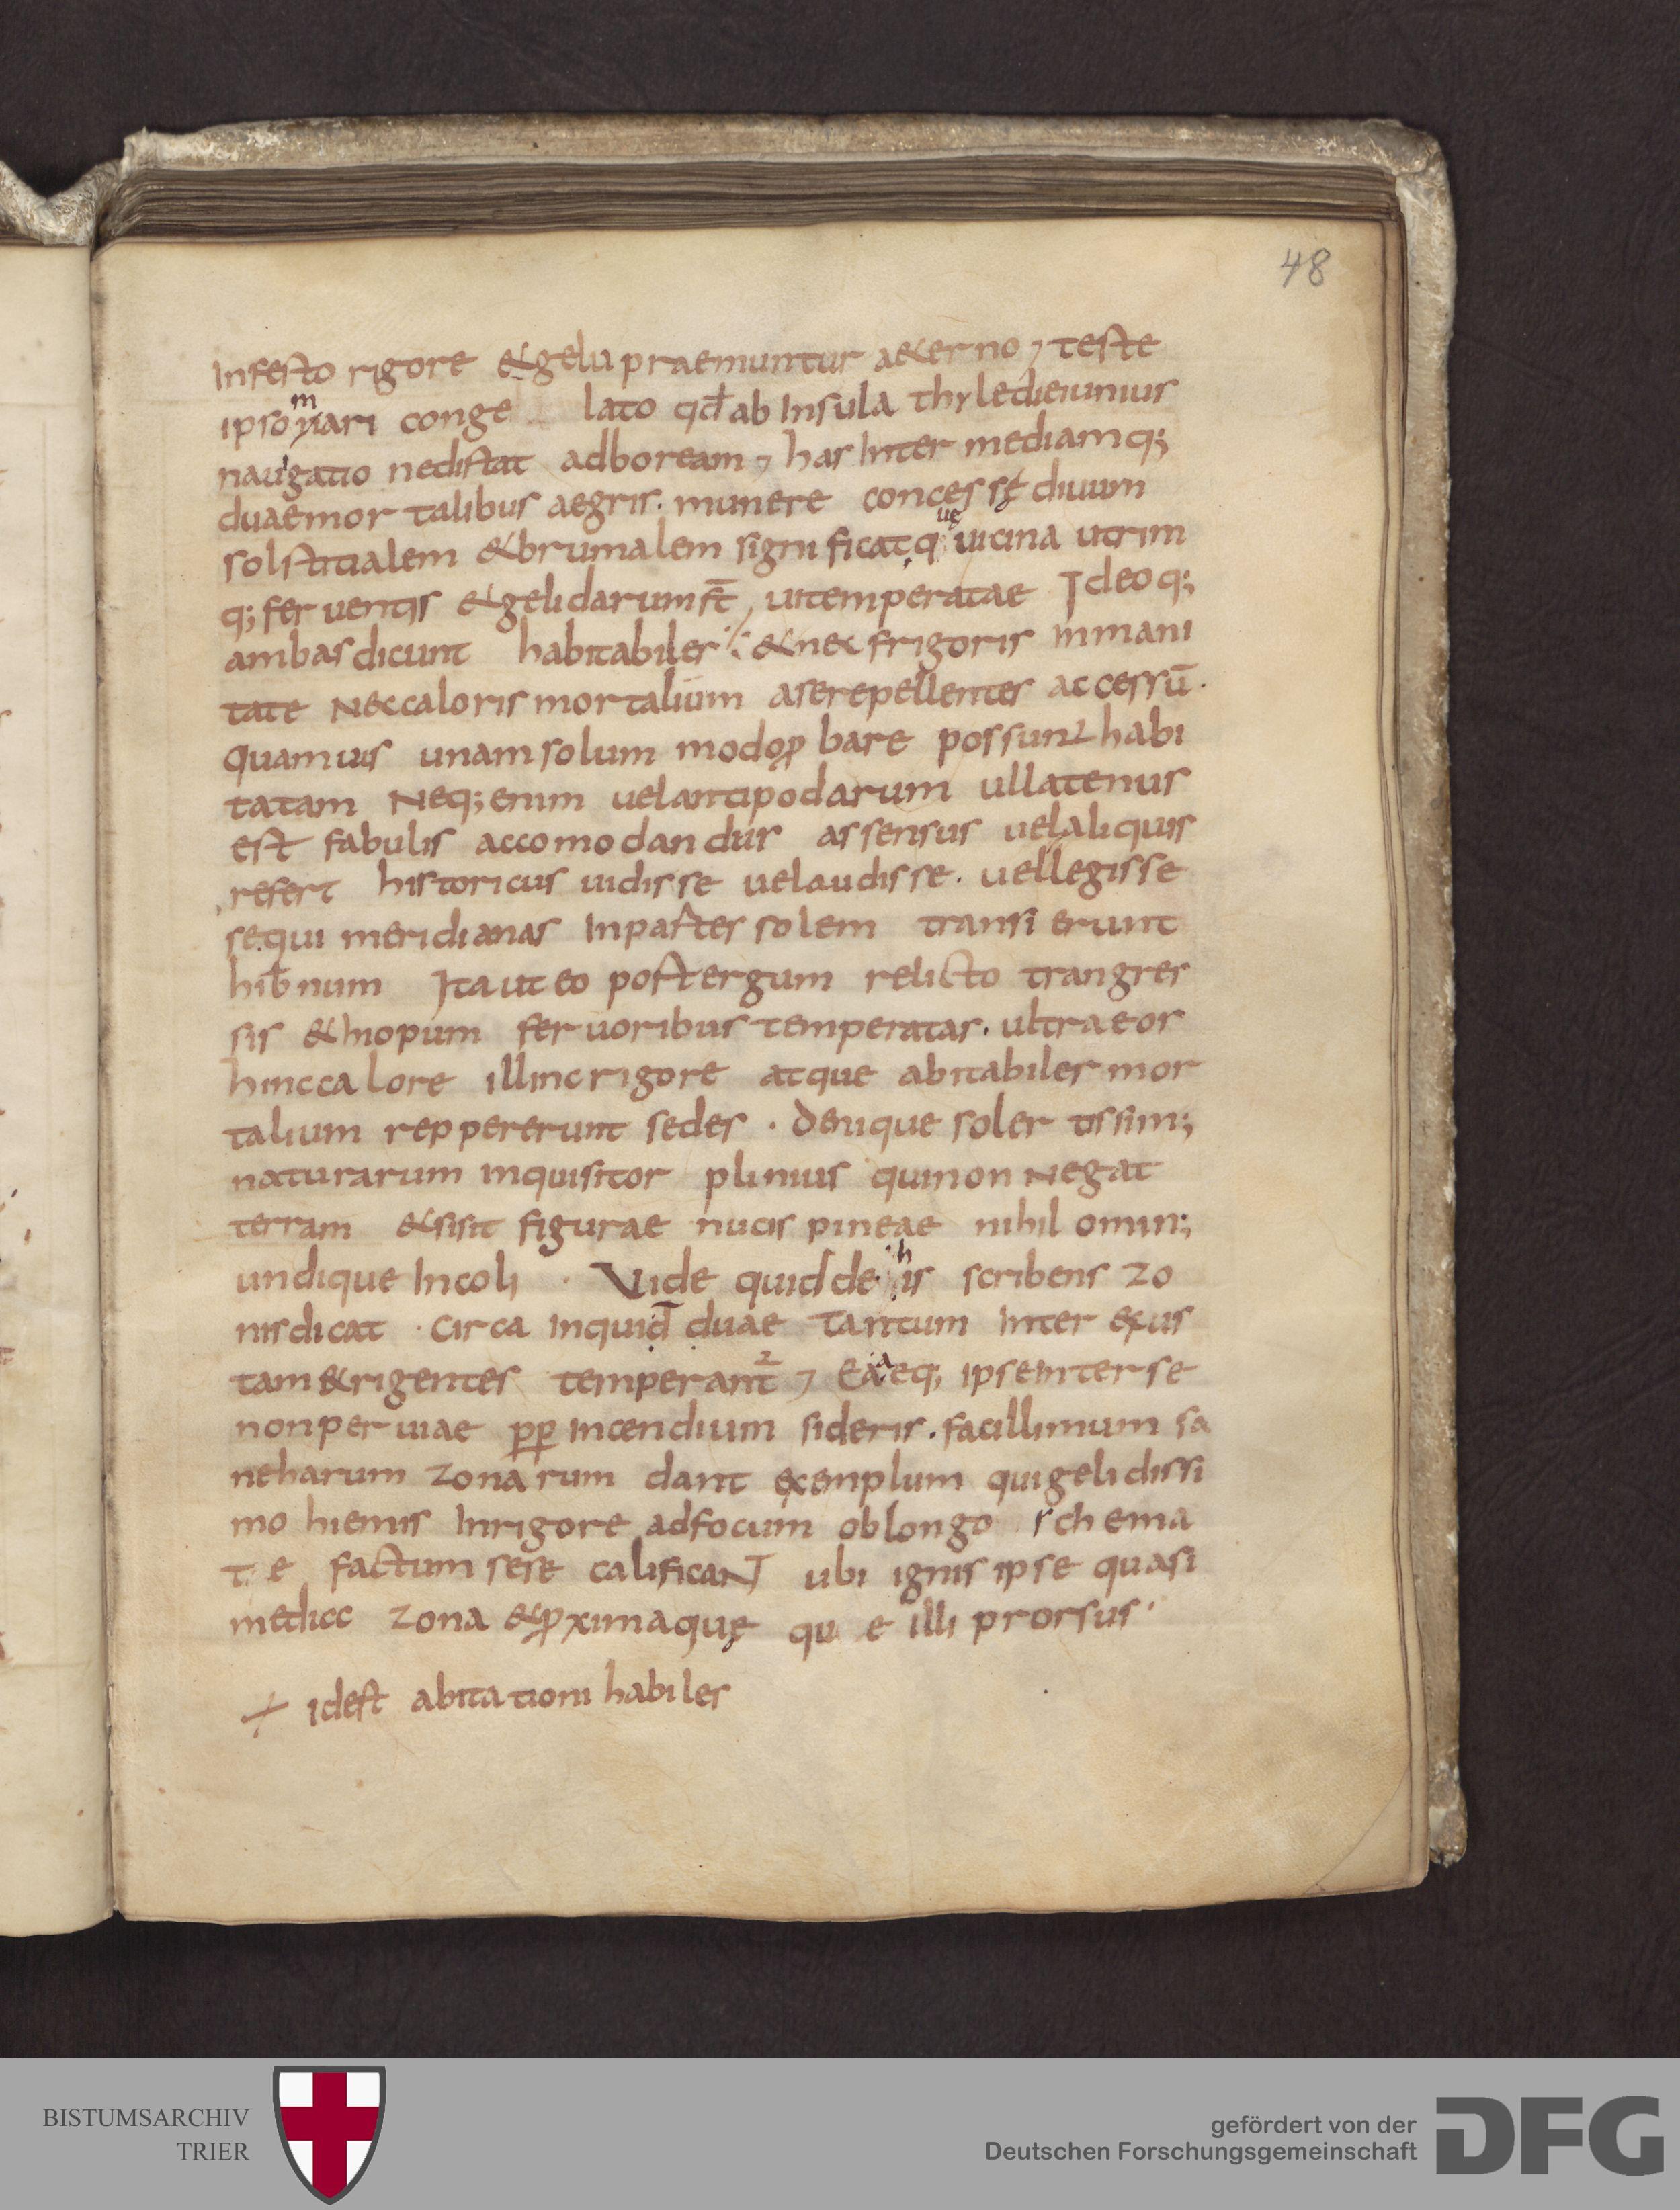 48
Infesto rigore & gelu praemuntur a&erno, teste
ipso mari conge lato qđ ab Insula thyle dieiunius
nauigatio ne distat ad boream, has Inter mediamq;
duae mortalibus aegris. munere concessę diuum
solstitialem & brumalem significat, quę uicina utrim
q; feruentis & gelidarum st̄, ut temperatae Ideoq;
ambas dicunt habitabiles & nec frigoris inmani
tate Nec caloris mortalium a se repellentes accessū.
Quamuis unam solum modo ꝓbare possunt habi
tatam Neq; enim uel antipodarum ullatenus
est fabulis accomodandus assensus uel aliquis
refert historicus uidisse uel audisse. uel legisse
se qui meridianas In partes solem transierunt
hiƀnum Ita ut eo post tergum relicto trangres
sis & hiopum feruoribus temperatas. ultra eos
hinc calore illinc rigore atque abitabiles mor
talium reppererunt sedes. Denique solertissim;
naturarum inquisitor plinius qui non Negat
terram & si sit figurae nucis pineae nihil omin;
undique Incoli. Vide quid de his scribens zo
nis dicat. Circa inquid duae tantum Inter exus
tam & rigentes temperant², Eaeq; ipse inter se
non peruiae ꝓꝑ incendium sideris. facillimum sa
ne harum zonarum dant exemplum qui gelidissi
mo hiemis In rigore ad focum oblongo schema
te factum sese calificaNT ubi ignis ipse quasi
medicc zona & ꝓxima quę qu e illi prorsus.
Idest abitationi habiles
BISTUMSARCHIV
TRIER
gefördert von der
Deutschen Forschungsgemeinschaft
DFG